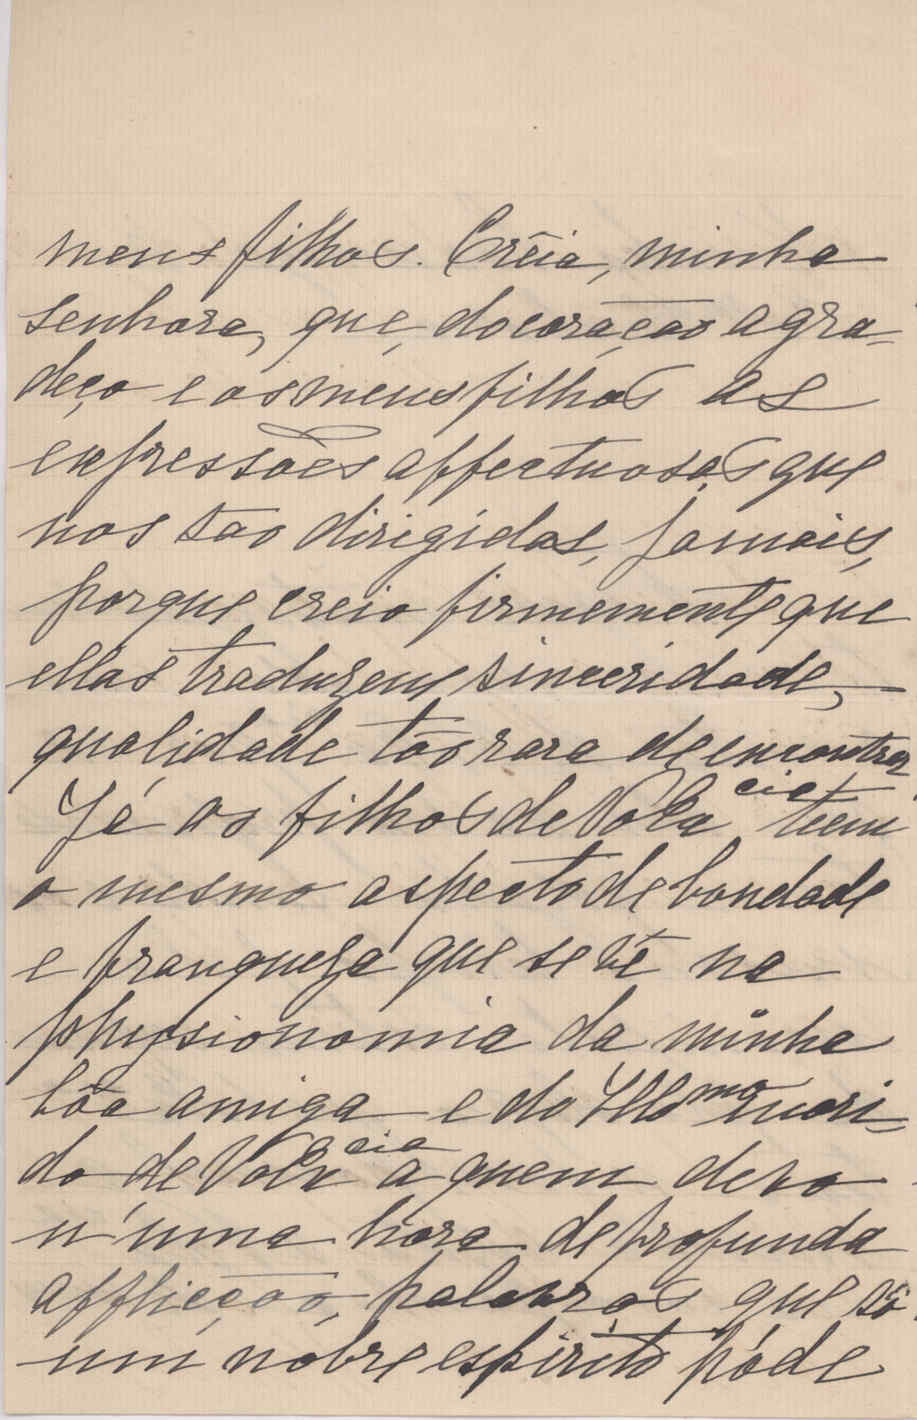 meus filhos. Crêia, minha
senhora, que, do coração agra=
deço e os meus filhos as
expressões affectuosas que
nos são dirigidas, jamais,
porque creio firmemente que
ellas traduzem sinceridade,
qualidade tão rara de encontrar
Já os filhos de V. Ex.cia teem
o mesmo aspecto de bondade
e franqueza que se vê na
physionomia da minha
bôa amiga e do Illmo mari=
do de V. Ex.cia a quem devo
n'uma hora de profunda
afflicção, palavras que só
um nobre espirito póde